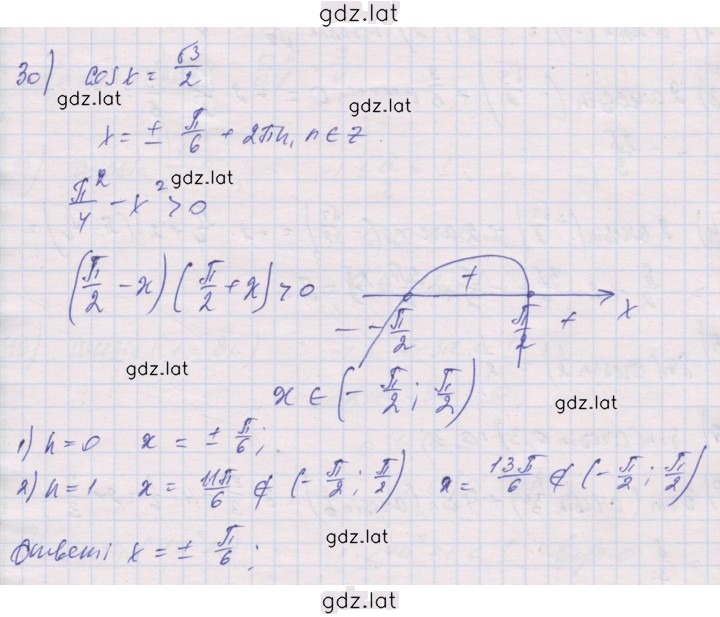 gdz.lat
30) cos x = √3/2
gdz.lat
gdz.lat
x = ± π/6 + 2πn, n ∈ Z
gdz.lat
π²/4 - x² > 0
(π/2 - x) (π/2 + x) > 0
+
- -π/2 π/2 + x
gdz.lat
x ∈ (-π/2; π/2)
gdz.lat
1) n = 0 x = ± π/6;
2) n = 1 x = 11π/6 ∉ (-π/2; π/2) x = 13π/6 ∉ (-π/2; π/2)
gdz.lat
Ответ: x = ± π/6;
gdz.lat